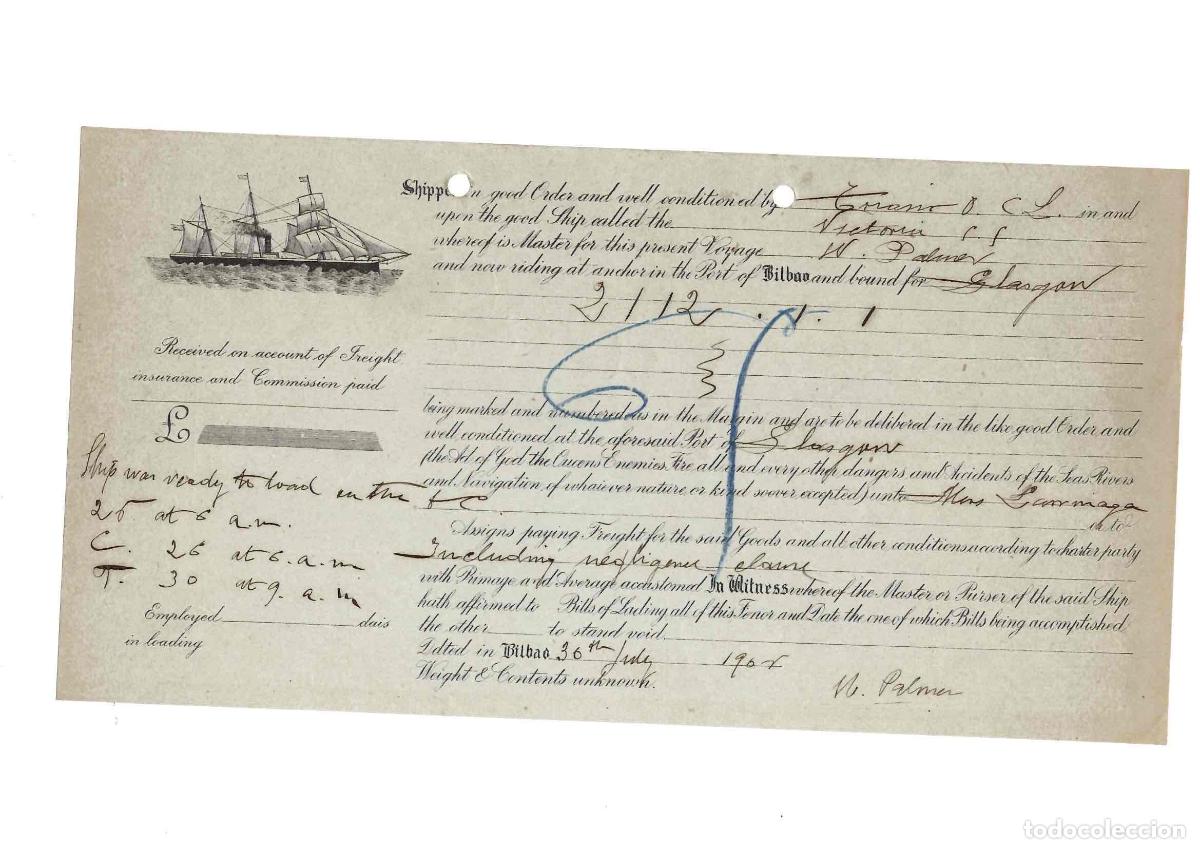 Shippe n good Order and well conditioned by O. C L. in and
upon the good Ship called the Victoria s s
whereof is Master for this present Voyage W. Palmer
and now riding at anchor in the Port of Bilbao and bound for Glasgow
2112 . 1. 1
being marked and numbered as in the Margin and are to be delibered in the like good Order and
well conditioned at the aforesaid Port of Glasgow
(the Act of God the Cueens Enemies. Fire all and every other dangers and Accidents of the Seas Rivers
and Navigation of whaiever nature or kind soover excepted) unto Mess Larrinaga
& C. or to
Assigns paying Freight for the said Goods and all other conditions according to charter party
Including negligence clause
with Primage and Average accustomed In Witness whereof the Master or Purser of the said Ship
hath affirmed to Bills of Lading all of this Tenor and Date the one of which Bills being accomptished
the other to stand void.
Ddted in Bilbao 30th July 1902
Weight & Contents unknown.
W. Palmer
Received on account of Freight
insurance and Commission paid
£
Ship was ready to load on the
25 at 6 a.m.
C. 26 at 6. a.m
T. 30 at 9. a.m
Employed dais
in loading
todocoleccion